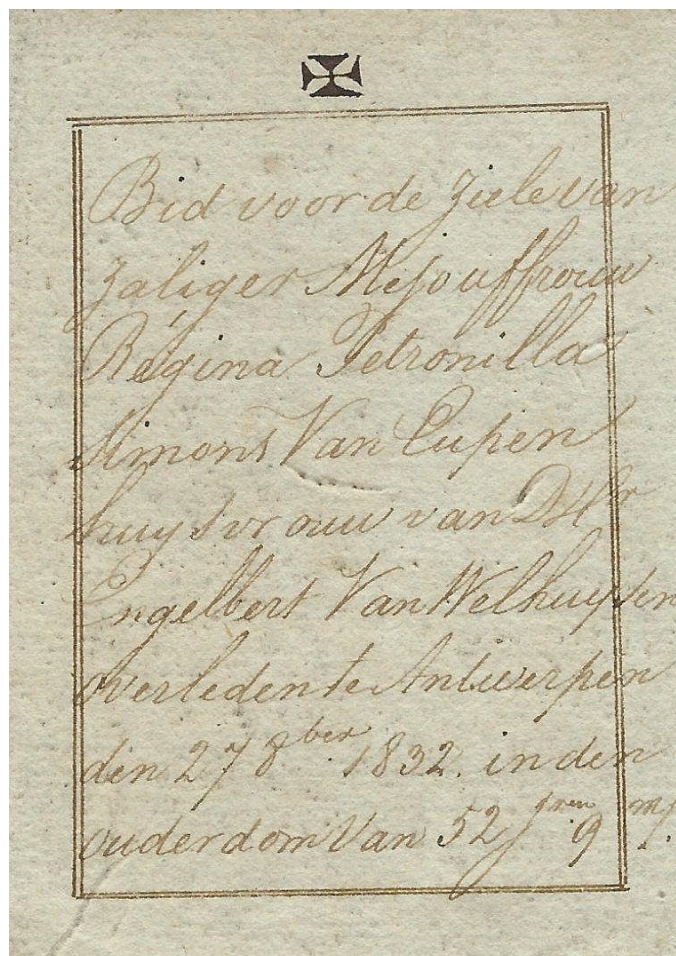 Bid voor de ziele van
zaliger Mejouffrouw
Régina Petronilla
Simons Van Eupen
huysvrouw van D'Hr
Engelbert Van Welhuysen
overleden te Antwerpen
den 27 8ber 1832. in den
ouderdom Van 52 jren 9 m/.